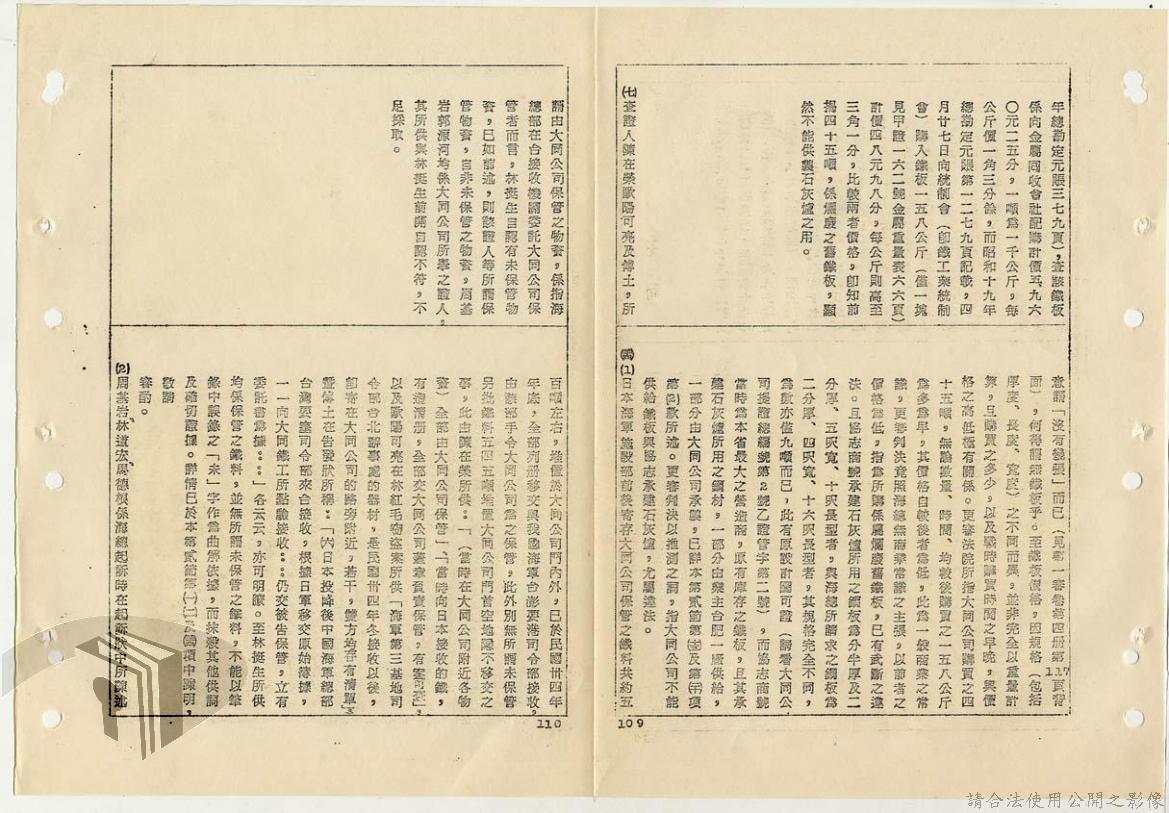 年總勘定元賬三七九頁),查該鐵板
係向金屬回收會社配購計價五九六
〇元二五分,一噸為一千公斤,每
公斤價一角三分餘,而昭和十九年
總勘定元賬第一二七九頁記載,四
月廿七日向統制會(卽鐵工業統制
會)購入鐵板一五八公斤(僅一塊
見甲證一六二號金屬重量表六六頁)
計價四八元九八分,每公斤則高至
三角一分,比較兩者價格,卽知前
揭四十五噸,係爛廢之舊鐵板,顯
然不能供製石灰爐之用。
㈦查證人陳在榮歐陽可亮及傅土,所
意謂「沒有幾張」而已(見第一審卷第四册第117頁背
面),何得謂無鐵板乎。至鐵板價格,因規格(包括
厚度、長度、寬度)之不同而異,並非完全以重量計
算,且購買之多少,以及戰時購買時間之早晚,與價
格之高低極有關係。更審法院所指大同公司購買之四
十五噸,無論數量、時間、均較後購買之一五八公斤
為多為早,其價格自較後者為低,此為一般商業之常
識,更審判決竟照海總無商業常識之主張,以前者之
價格為低,指為所購係屬爛廢舊鐵板,已有武斷之違
決。且協志商號承建石灰爐所用之鋼板為分半厚及二
分厚、五呎寬、十呎長型者,與海總所請求之鋼板為
二分厚、四呎寬、十六呎長型者,其規格完全不同,
為數亦僅九噸而已,此有原設計圖可證(請看大同公
司提證總編號第2號乙證管字第二號),而協志商號
當時為本省最大之營造商,原有庫存之鐵板,且其承
建石灰爐所用之鋼材,一部分由業主台肥一廠供給,
一部分由大同公司承製,已詳本第貳節第㈤及第㈩項
第⑵款所述。更審判決以推測之詞,指大同公司不能
供給鐵板與協志承建石灰爐,尤屬違法。
⑴日本海軍施設部前後寄存大同公司保管之鐵料共約五
109
謂由大同公司保管之物資,係指海
總部在台接收機關委託大同公司保
管者而言,林挺生自認有未保管物
資,已如前述,則該證人等所謂保
管物資,自非未保管之物資,周基
岩郭源河均係大同公司所舉之證人,
其所供與林挺生前開自認不符,不
足採取。
百噸左右,堆置於大同公司門內外,已於民國卅四年
年底,全部列册移交與我國海軍台澎要港司令部接收,
由該部手令大同公司為之保管,此外別無所謂未保管
另批鐵料五四五噸堆置大同公司門首空地隱不移交之
事,此由陳在榮所供:「(當時在大同公司附近各物
資)全部由大同公司保管」「當時向日本接收的鐵,
有造清册,全部交大同公司蓋章負責保管,有案可查」,
以及歐陽可亮在林紅毛竊盜案所供「海軍第三基地司
令部台北辦事處的器材,是民國卅四年冬接收以後,
卽寄在大同公司的路旁附近,若干,雙方均存有清單」,
暨傅土在告發狀所稱:「㈥日本投降後中國海軍總部
台灣要塞司令部來台接收,根據日軍移交原始簿據,
一一向大同鐵工所點驗接收‥‥仍交被告保管,立有
委託書為據‥‥」各云云,亦可明瞭。至林挺生所供
均係保管之鐵料,並無所謂未保管之鐵料,不能以筆
錄中誤錄之「未」字作為曲解依據,而抹殺其他供詞
及確切證據。詳情已於本第貳節第㈠㈡及㈣項中陳明,
敬請
審酌。
⑵周基岩、林道宏馬德根係海總起訴時在起訴狀中所陳述
110
請合法使用公開之影像